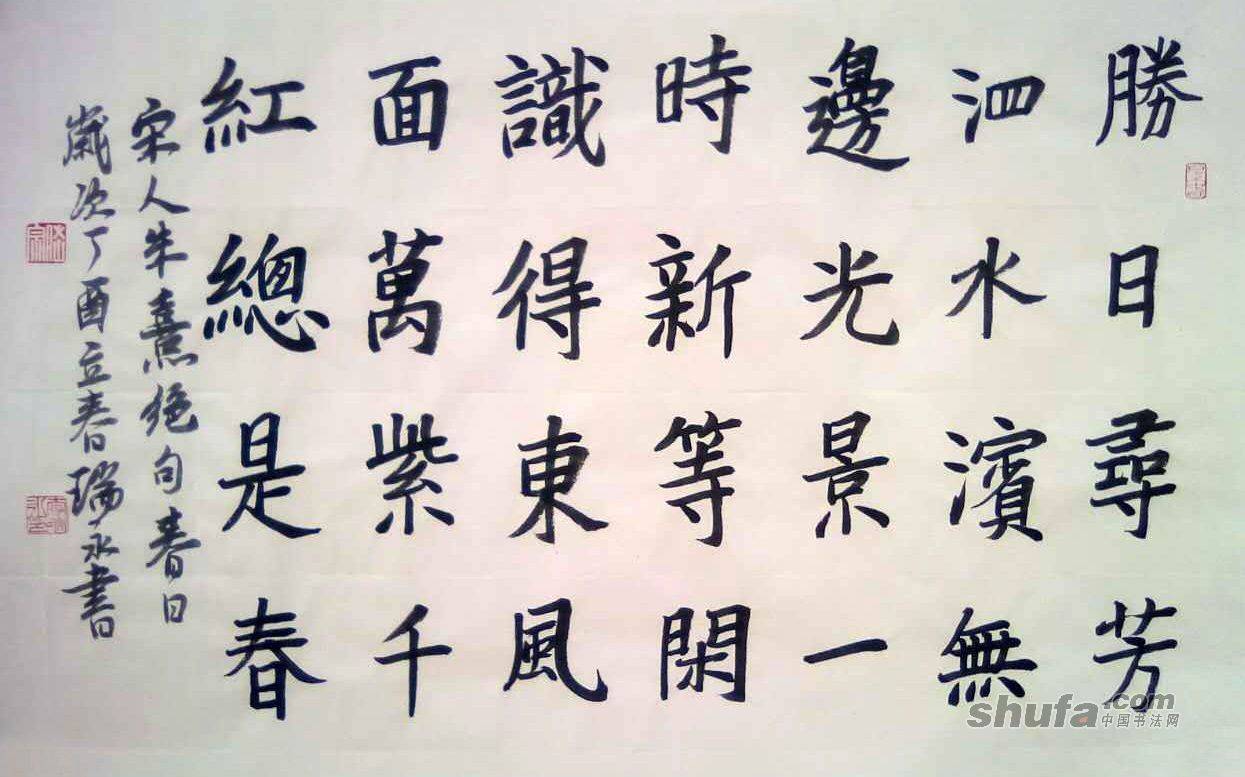 勝日尋芳
泗水濱無
邊光景一
時新等閑
識得東風
面萬紫千
紅總是春
宋人朱熹絕句春日
歲次丁酉立春日瑞永書
shufa.com
中国书法网